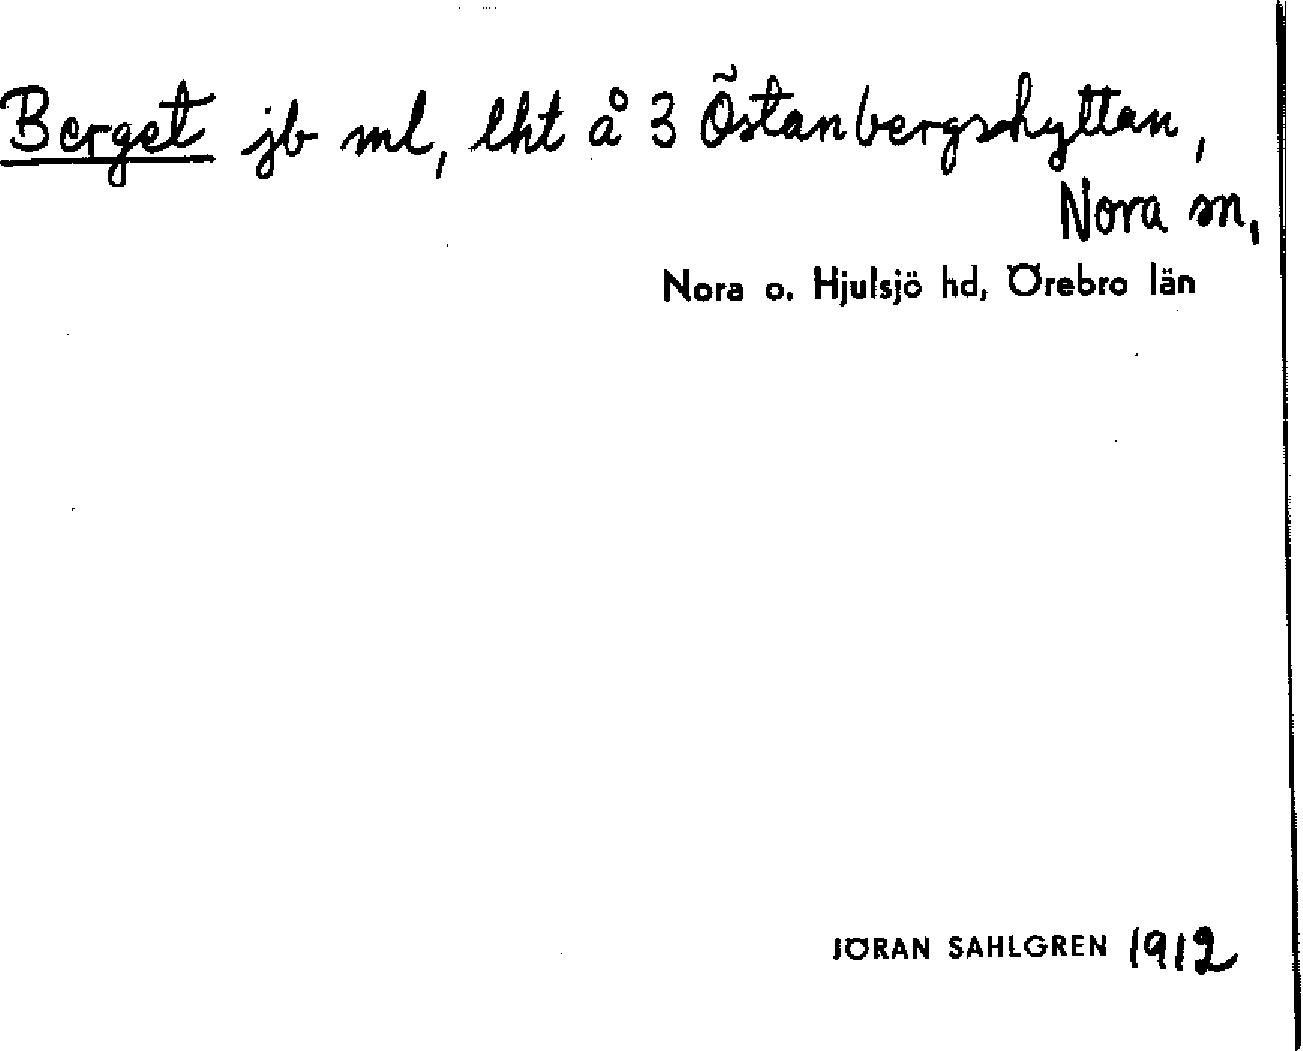 Berget jb ml, lht å 3 Östanbergshyttan,
Nora sn,
Nora o. Hjulsjö hd, Örebro län
JÖRAN SAHLGREN 1912